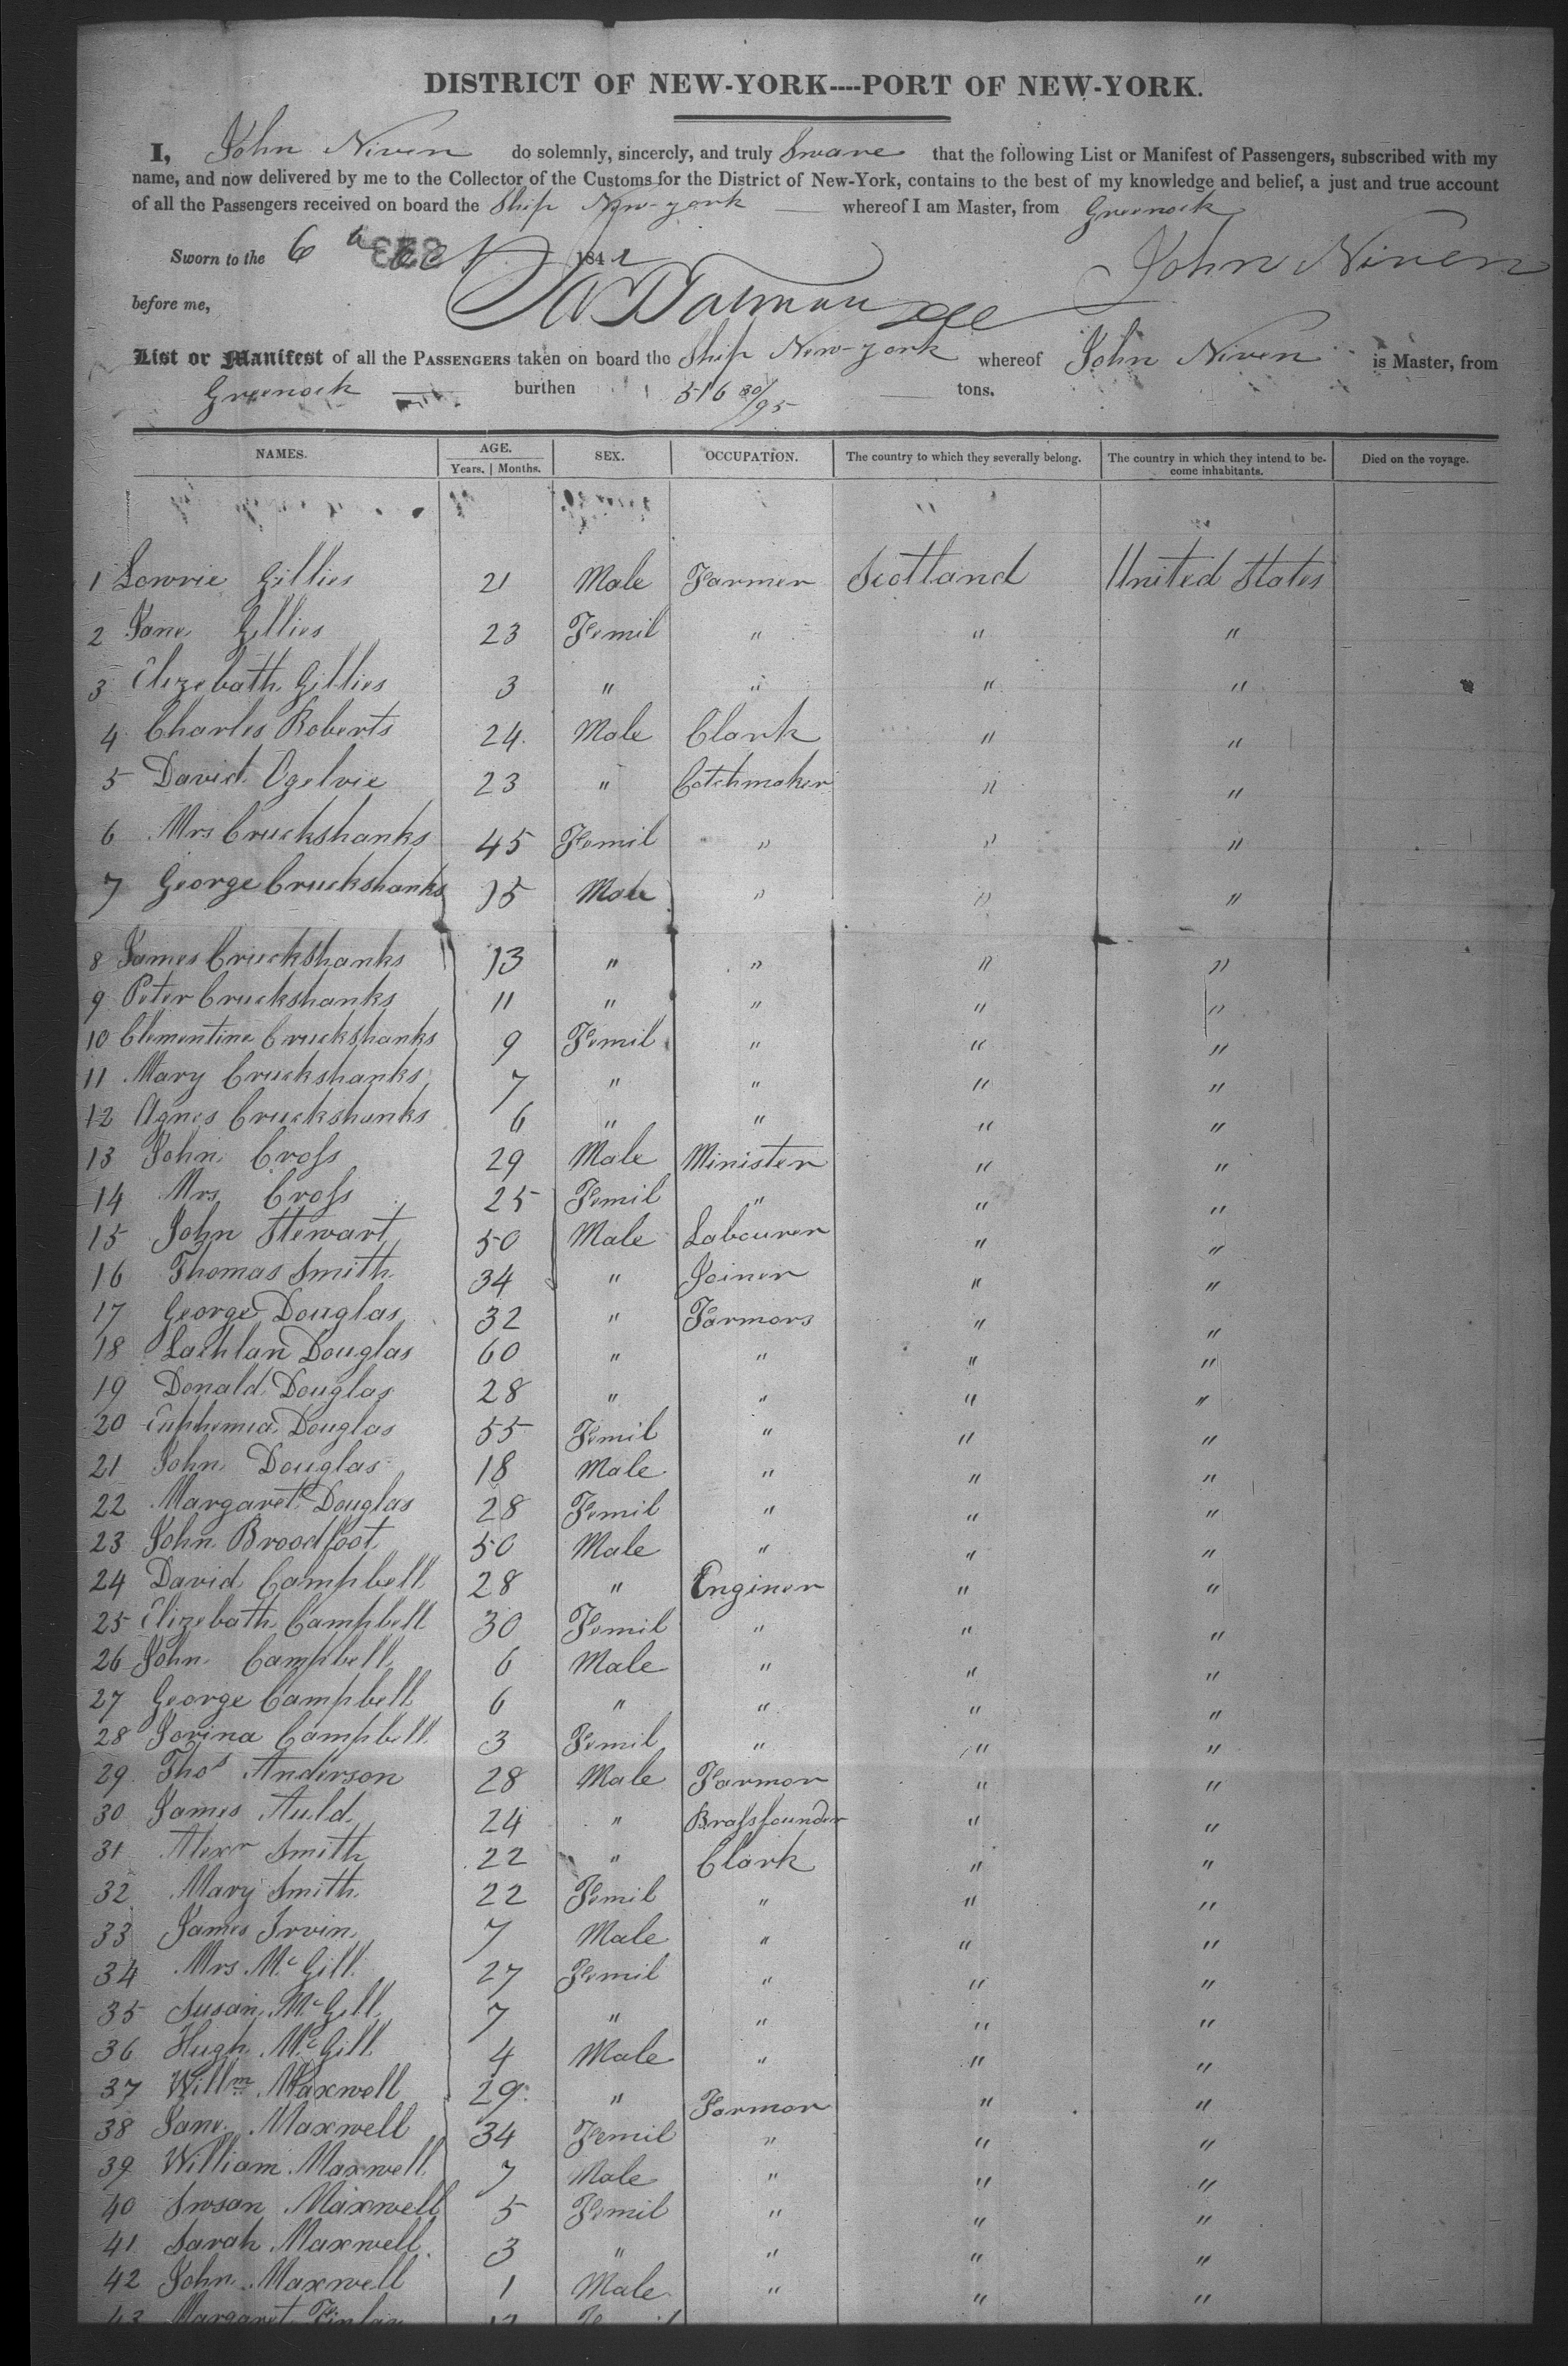 DISTRICT OF NEW-YORK----PORT OF NEW-YORK.
I, John Niven do solemnly, sincerely, and truly Sware that the following List or Manifest of Passengers, subscribed with my
name, and now delivered by me to the Collector of the Customs for the District of New-York, contains to the best of my knowledge and belief, a just and true account
of all the Passengers received on board the Ship New-york whereof I am Master, from Greenock
Sworn to the 6 Oct 1842 John Niven
before me,
List or Manifest of all the PASSENGERS taken on board the Ship New-york whereof John Niven is Master, from
Greenock burthen 516 30/95 tons.
NAMES. AGE. SEX. OCCUPATION. The country to which they severally belong. The country in which they intend to be- Died on the voyage.
Years. | Months. come inhabitants.
1 Lowrie Gillies 21 Male Farmer Scotland United States
2 Jane Gillies 23 Femil " " "
3 Elizebath Gillies 3 " " " "
4 Charles Roberts 24 Male Clark " "
5 David Ogelvie 23 " Cotchmaker " "
6 Mrs Cruckshanks 45 Femil " " "
7 George Cruckshanks 15 Male " " "
8 James Cruckshanks 13 " " " "
9 Peter Cruckshanks 11 " " " "
10 Clementine Cruckshanks 9 Femil " " "
11 Mary Cruckshanks 7 " " " "
12 Agnes Cruckshanks 6 " " " "
13 John Cross 29 Male Minister " "
14 Mrs Cross 25 Femil " " "
15 John Stewart 50 Male Labourer " "
16 Thomas Smith 34 " Joiner " "
17 George Douglas 32 " Farmers " "
18 Lachlan Douglas 60 " " " "
19 Donald Douglas 28 " " " "
20 Euphemia Douglas 55 Femil " " "
21 John Douglas 18 Male " " "
22 Margaret Douglas 28 Femil " " "
23 John Broodfoot 50 Male " " "
24 David Campbell 28 " Enginer " "
25 Elizebath Campbell 30 Femil " " "
26 John Campbell 6 Male " " "
27 George Campbell 6 " " " "
28 Sorina Campbell 3 Femil " " "
29 Thos Anderson 28 Male Farmor " "
30 James Auld 24 " Brassfounder " "
31 Alexr Smith 22 " Clark " "
32 Mary Smith 22 Femil " " "
33 James Irvin 7 Male " " "
34 Mrs McGill 27 Femil " " "
35 Susan McGill 7 " " " "
36 Hugh McGill 4 Male " " "
37 Willm Maxwell 29 " Farmor " "
38 Jane Maxwell 34 Femil " " "
39 William Maxwell 7 Male " " "
40 Swsan Maxwell 5 Femil " " "
41 Sarah Maxwell 3 " " " "
42 John Maxwell 1 Male " " "
43 Margaret Finlay